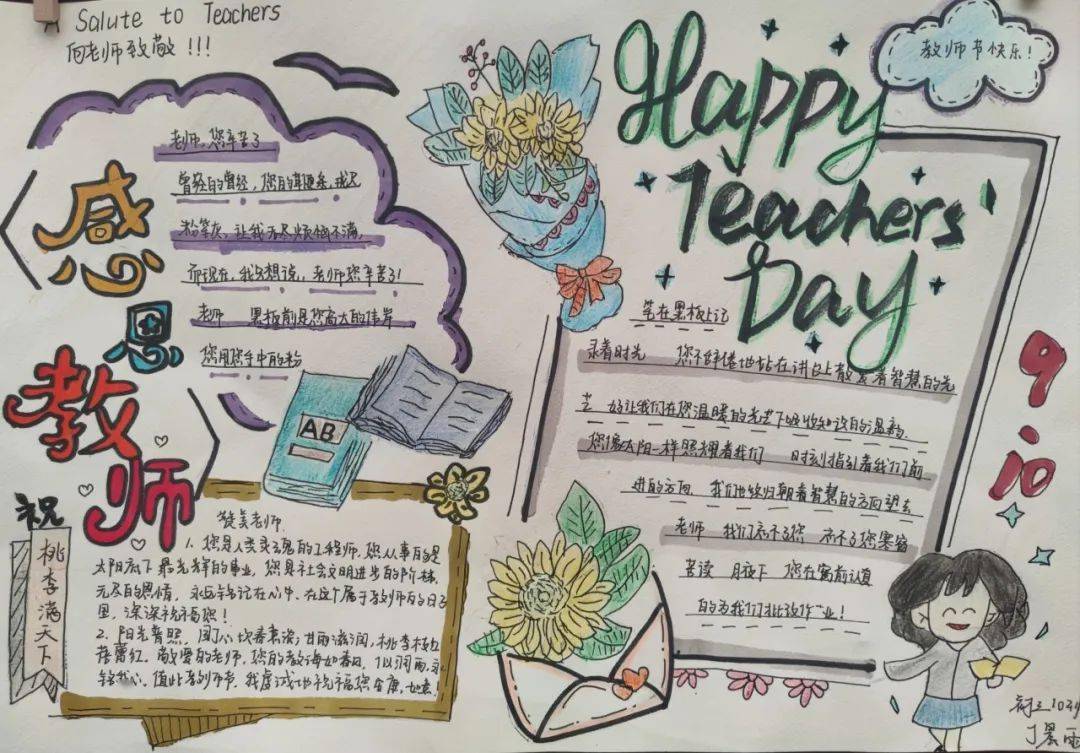 Salute to Teachers
向老师致敬!!!
感恩
教师
老师,您辛苦了
曾经的曾经,您的耳提
粉笔灰,让我无尽烦恼不满,
而现在,我只想说,老师您辛苦了!
老师 黑板前是您高大的伟岸
您用您手中的粉
AB
祝
桃李满天下
赞美老师
1.您是人类灵魂的工程师,您从事的是
太阳底下最光辉的事业,您是社会文明进步的阶梯.
无尽的恩情,永远铭记在心中、在这个属于教师的日子
里,深深祝福您!
2.阳光普照,园丁心坎春意浓;甘雨滋润,桃李枝红
蓓蕾红。敬爱的老师,您的教诲如春风,似润雨,永
铭我心。值此教师节,我虔诚地祝福您安康,如意!
Happy
Teachers'
Day
教师节快乐!
9.10
笔在黑板上记
录着时光 您不辞倦地站在讲台上散发着智慧的光
芒 好让我们在您温暖的光芒下吸收知识的温韵.
您像太阳一样照耀着我们 时刻指引着我们前
进的方向. 我们始终朝着智慧的方向望去
老师 我们忘不了您 忘不了您寒窗
苦读 月夜下 您在窗前认真
的为我们批改作业!